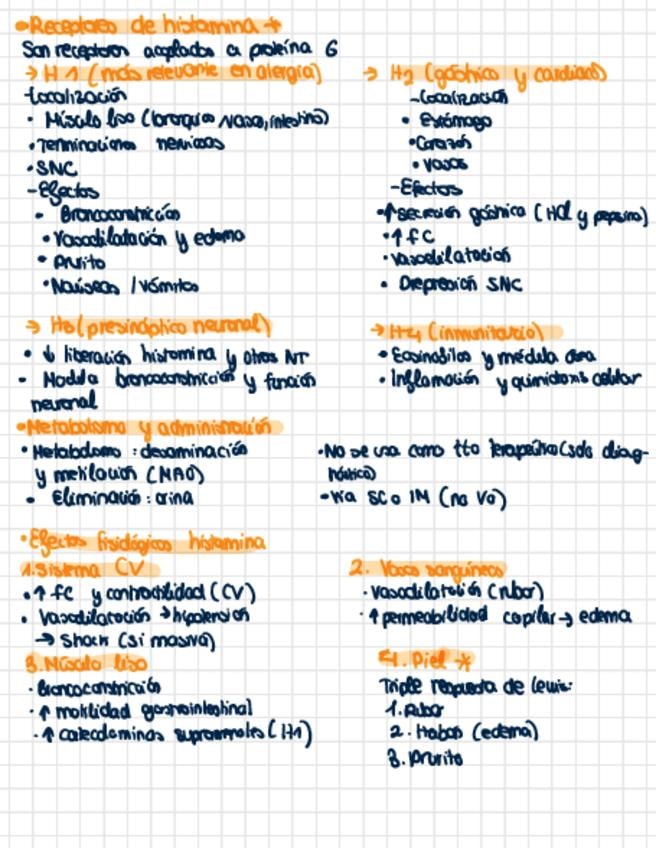 •Receptores de histamina *
Son receptores acoplados a proteína G
→ H1 (más relevante en alergia)
-Localización
• Músculo liso (bronquios, vasos, intestino)
• Terminaciones nerviosas
• SNC
-Efectos
• Broncoconstricción
• Vasodilatación y edema
• Prurito
• Náuseas / vómitos
→ H2 (gástrico y cardiaco)
-Localización
• Estómago
• Corazón
• Vasos
-Efectos
• ↑ secreción gástrica (HCl y pepsina)
• ↑ FC
• Vasodilatación
• Depresión SNC
→ H3 (presináptico neuronal)
• ↓ liberación histamina y otros NT
- Modula broncoconstricción y función
neuronal
→ H4 (inmunitario)
• Eosinófilos y médula ósea
• Inflamación y quimiotaxis celular
•Metabolismo y administración
• Metabolismo : desaminación
y metilación (MAO)
• Eliminación : orina
•No se usa como tto terapéutico (solo diag-
nóstico)
-Vía SC o IM (no VO)
•Efectos fisiológicos histamina
1. Sistema CV
• ↑ FC y contractilidad (CV)
• Vasodilatación → hipotensión
→ Shock (si masiva)
2. Vasos sanguíneos
• Vasodilatación (rubor)
• ↑ permeabilidad capilar → edema
3. Músculo liso
• Broncoconstricción
• ↑ motilidad gastrointestinal
• ↑ catecolaminas suprarrenales (H1)
4. Piel *
Triple respuesta de Lewis:
1. Rubor
2. Habón (edema)
3. Prurito